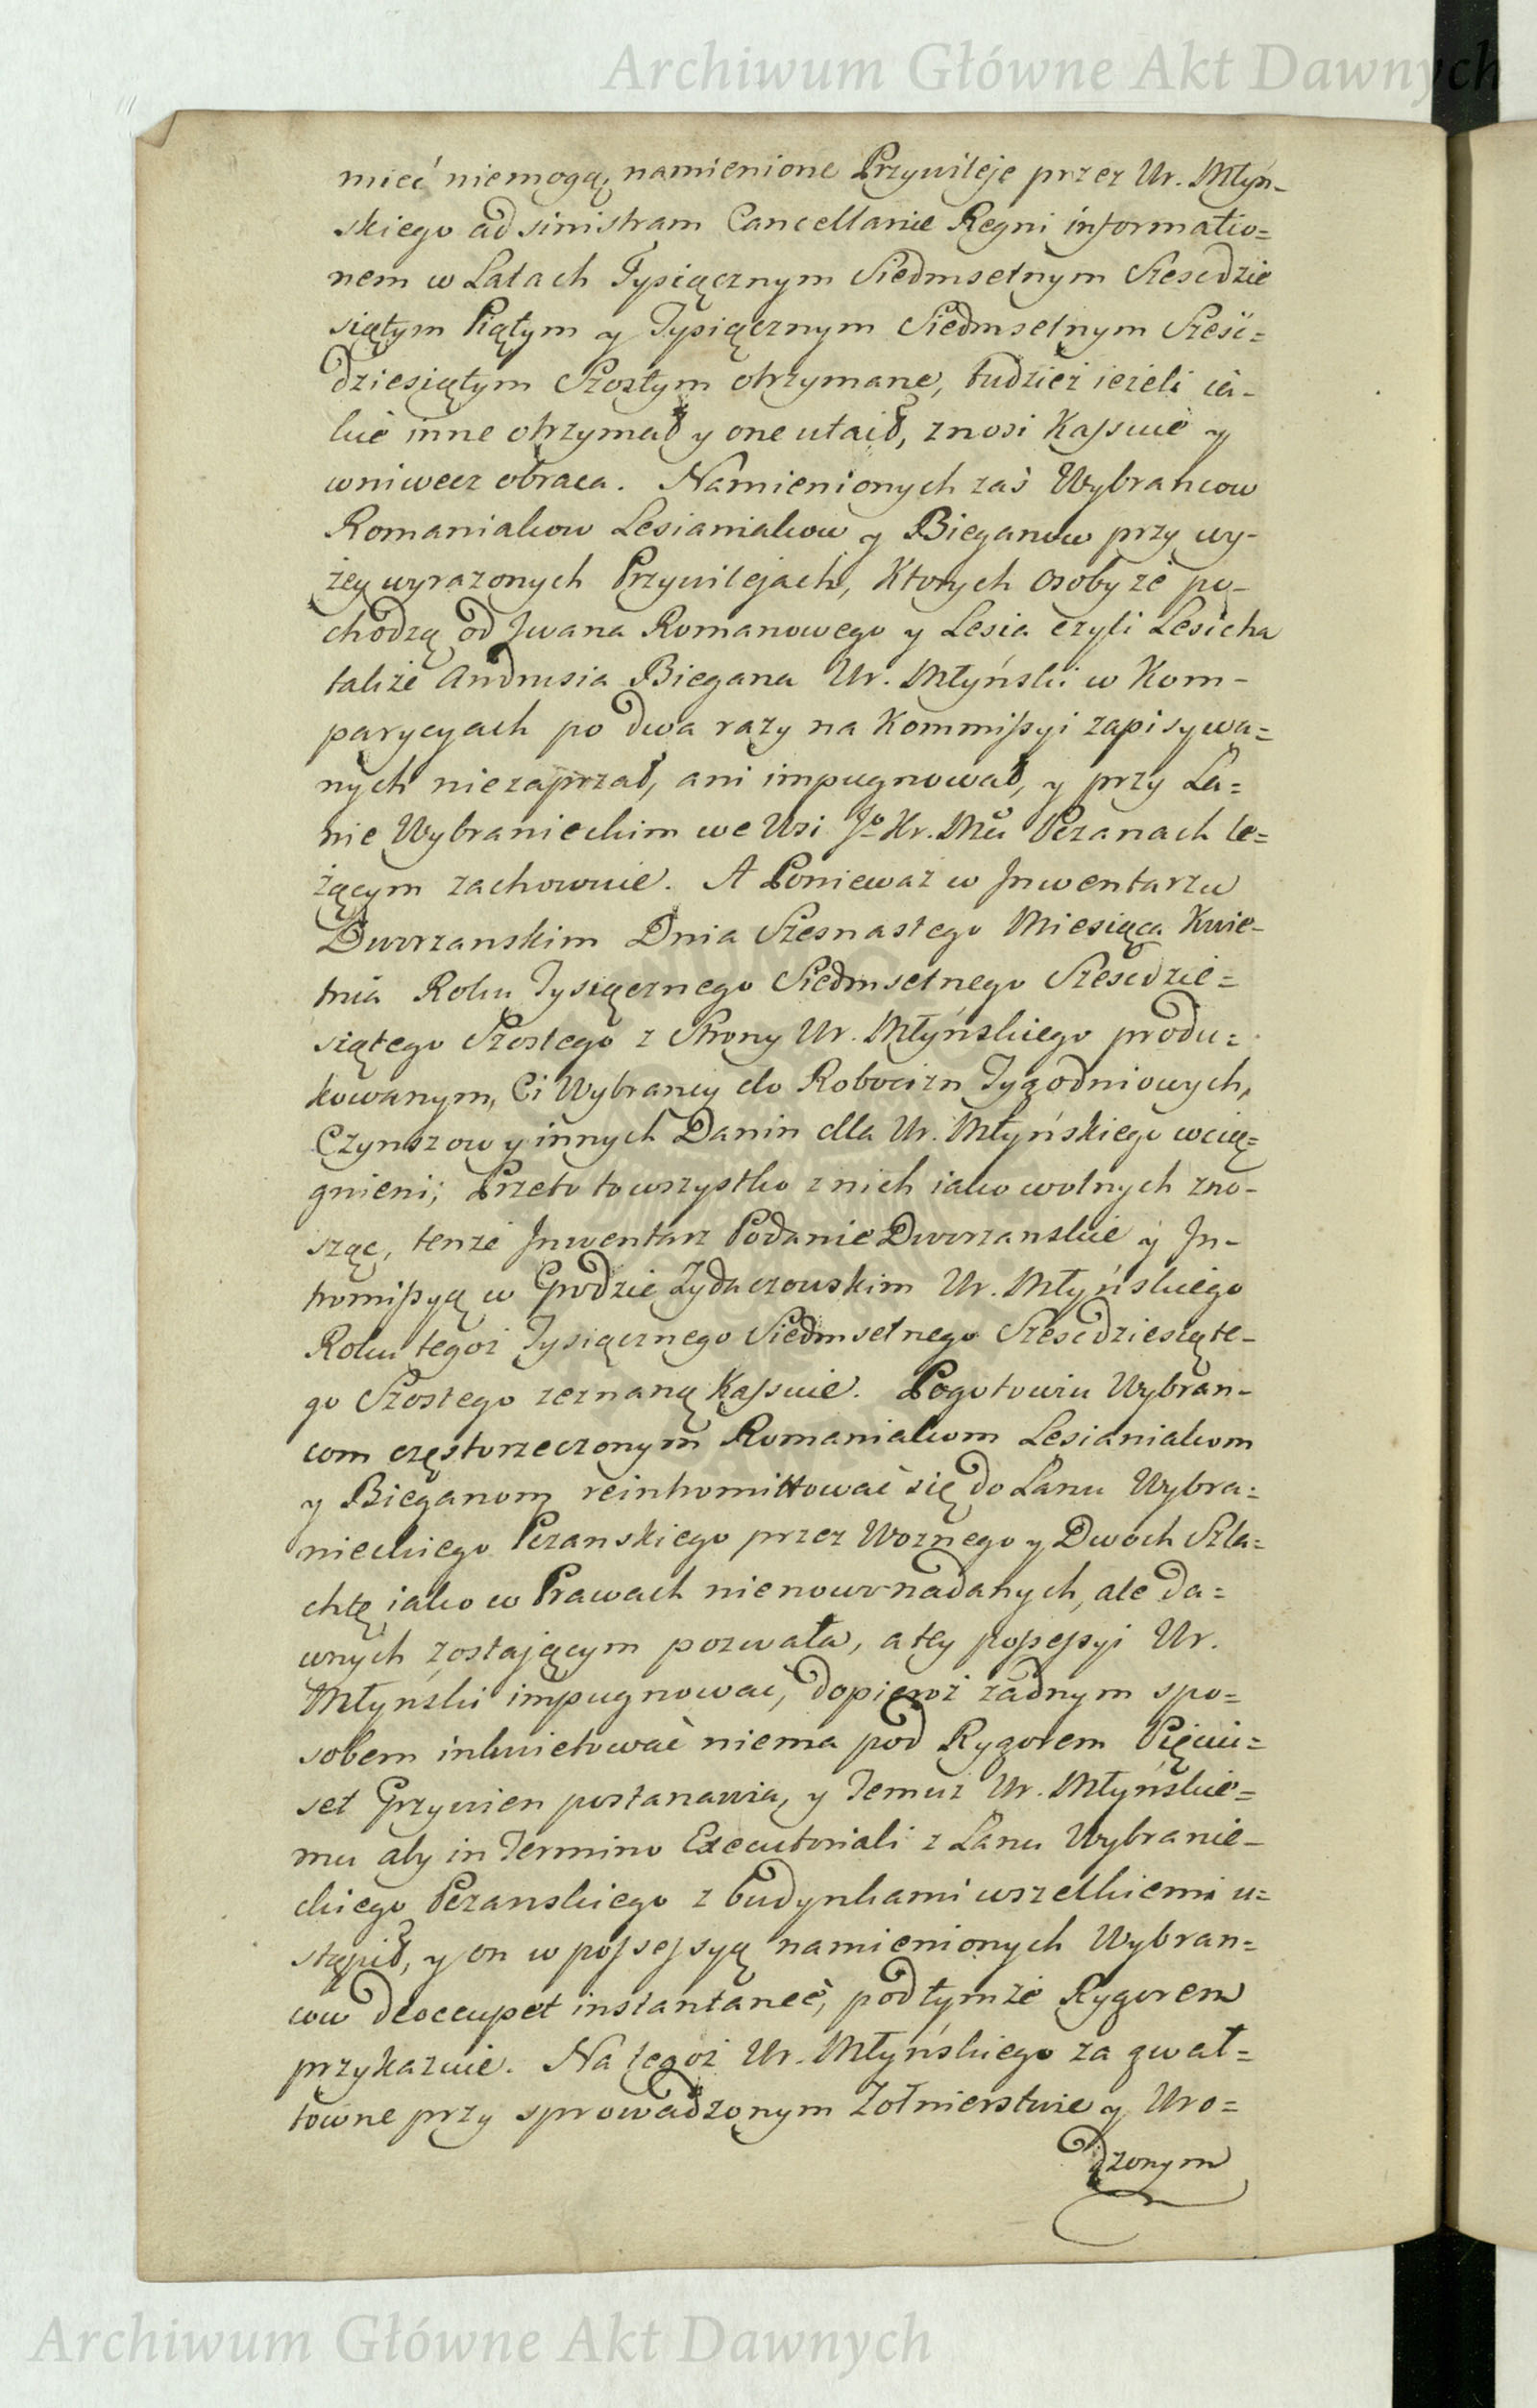 Archiwum Główne Akt Dawnych
mieć niemogą, namienione Przywileje przez Ur. Młyń-
skiego ad sinistram Cancellariæ Regni informatio=
nem w Latach Tysiącznym Siedmsetnym Szescdzie
siątym Piątym y Tysiącznym Siedmsetnym Sześć=
dziesiątym Szostym otrzymane, tudzież ieżeli ia-
kie inne otrzymał y one utaił, znosi Kassuie y
wniwecz obraca. Namienionych zaś Wybrancow
Romaniakow Lesianiakow y Bieganow przy wy-
żey wyrazonych Przywilejach, Ktorych osoby że po-
chodzą od Jwana Romanowego y Lesia czyli Lesicha
także Andrusia Biegana Ur. Młyński w Kom-
parycyach po dwa razy na Kommissyi zapisywa=
nych niezaprzał, ani impugnował, y przy La=
nie Wybranieckim we Wsi Jo Kr. Mci Pczanach le=
żącym zachowuie. A Ponieważ w Jnwentarzu
Dworzanskim Dnia Szesnastego Miesiąca Kwie-
tnia Roku Tysiącznego Siedmsetnego Szescdzie=
siątego Szostego z Strony Ur. Młyńskiego produ=
kowanym, Ci Wybrancy do Robocizn Tygodniowych,
Czynszow y innych Danin dla Ur. Młyńskiego wcią=
gnieni; Przeto to wszystko z nich iako wolnych zno-
sząc, tenże Jnwentarz Podanie Dworzanskie y Jn-
tromissyą w Grodzie Zydaczowskim Ur. Młyńskiego
Roku tegoż Tysiącznego Siedmsetnego Szescdziesiąte-
go Szostego zeznaną Kassuie. Pogotowiu Wybran-
com częstorzeczonym Romaniakom Lesianiakom
y Bieganom reintromittować się do Lanu Wybra=
nieckiego Pczanskiego przez Wożnego y Dwoch Szla=
chtę iako w Prawach nienowo nadanych, ale da=
wnych zostającym pozwala, a tey possessyi Ur.
Młyński impugnować, dopieroż żadnym spo=
sobem inkwietować niema pod Rygorem Pięciu=
set Grzywien postanawia, y Temuż Ur. Młyńskie=
mu aby in Termino Executoriali z Lanu Wybranie-
ckiego Pczanskiego z budynkami wszelkiemi u=
stąpił, y on w possessyą namienionych Wybran=
cow deoccupet instantaneè, pod tymże Rygorem
przykazuie. Na tegoż Ur. Młyńskiego za gwał=
towne przy sprowadzonym Zołnierstwie y Uro=
dzonym
Archiwum Główne Akt Dawnych